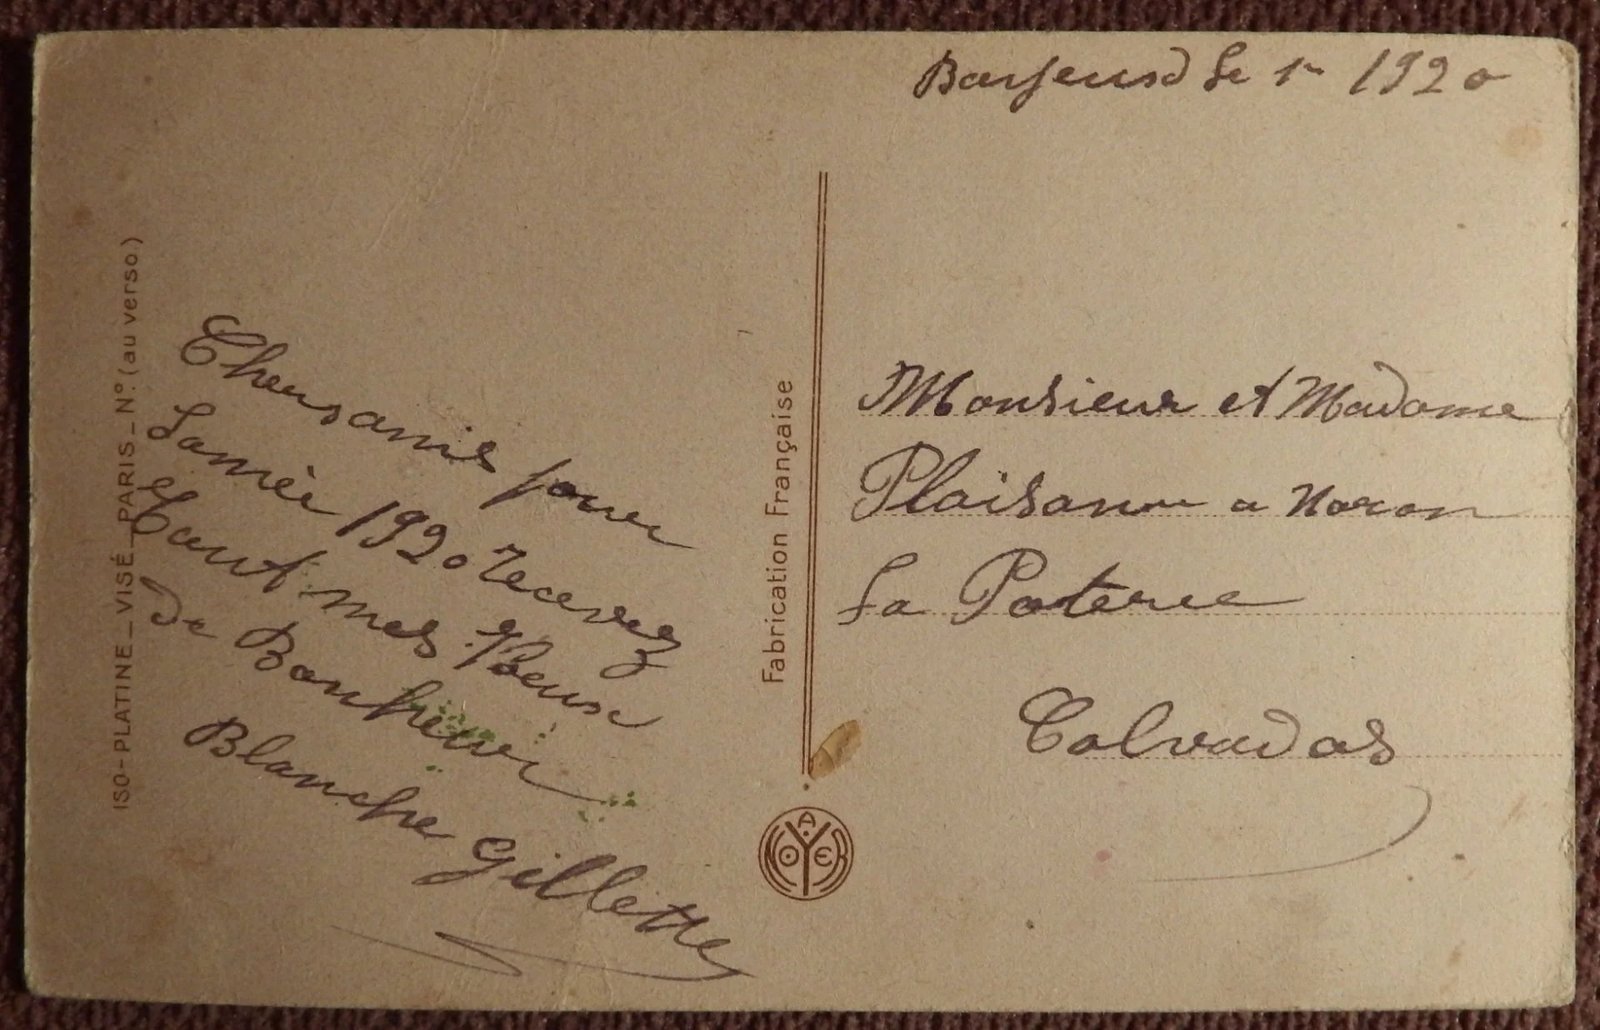 le 1er 1920
Chers amis pour
Lannèe 1920 recevez
Tout mes Voeux
de Bonheur
Blanche Gillette
Monsieur et Madame
Plaisance a Noron
La Poterie
Calvados
Fabrication Française
ISO-PLATINE_VISÉ_PARIS_N° (au verso)
A. NOYER